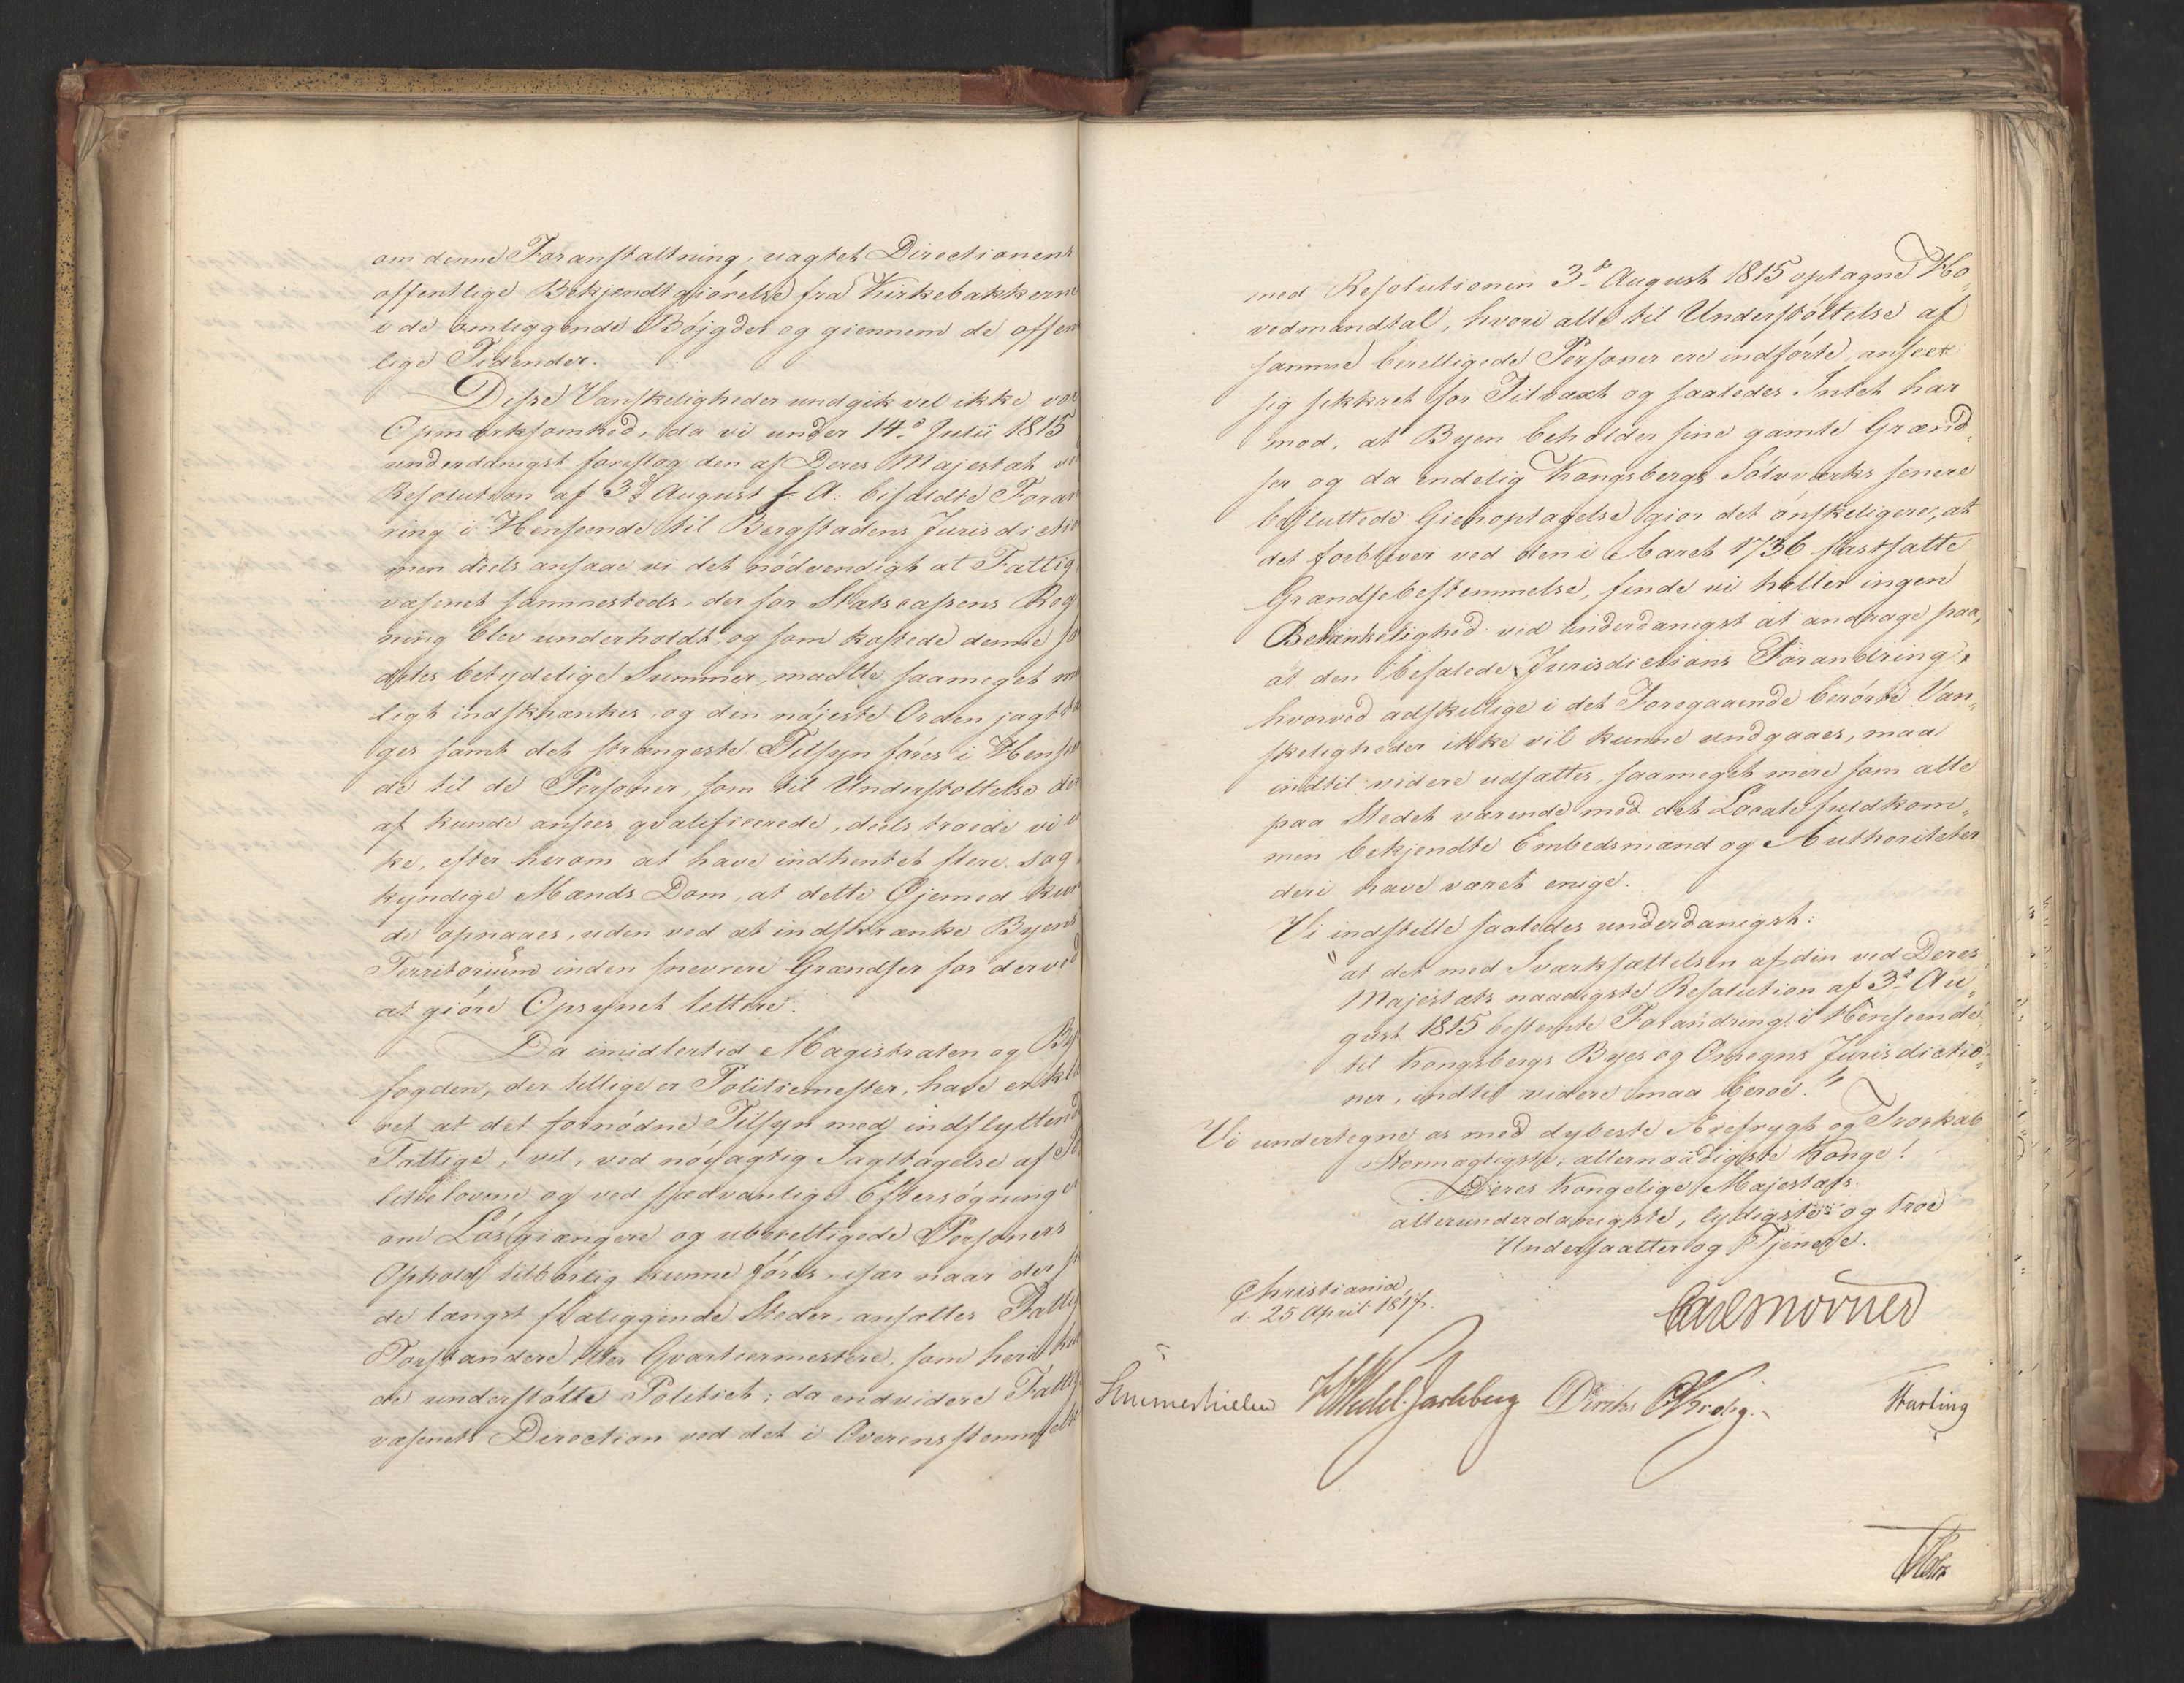 om denne Foranstaltning, uagtet Directionens
offentlige Bekjendtgiörelse fra Kirkebakkerne
i de omliggende Böjgder og giennem de offen
lige Tidender.
Disse Vanskeligheder undgik vel ikke vor
Opmærksomhed, da vi under 14.d Julii 1815
underdanigst foreslog den af Deres Majestæt ve
Resolution af 3.d August f. A. bifaldte Foran
ring i Henseende til Bergstadens Jurisdictio
men deels ansaae vi det nödvendigt at Fattig
væsenet sammesteds, der for Statscassens Reg
ning blev underholdt, og som kostede denne
betydelige Summer, maatte saameget mu
ligt indskrænkes, og den nöjeste Orden jagtta
ges samt det strængeste Tilsyn föres i Hense
de til de Personer, som til Understöttelse der
af kunde ansees qvalificerede, deels troede vi ik
ke, efter herom at have indhentet flere sag
kyndige Mænds Dom, at dette Öjemed kun
de opnaaes, uden ved at indskrænke Byens
Territorium inden snevrere Grændser for derved
at giöre Opsynet lettere.
Da imidlertid Magistraten og By
fogden, der tillige er Politiemester, have erklæ
ret at det fornödne Tilsyn med indflyttend
Fattige, vil, ved nöjagtig Jagttagelse af Po
litielovene og ved sædvanlige Eftersögninger
om Lösgiængere og uberettigede Personers
Ophold tilbörlig kunne föres, især naar der
de længst fraliggende Steder, ansættes Fattig
Forstandere eller Qvarteermestere, som heri kun
de understötte Politiet; da endvidere Fattig
væsenets Direction ved det i Overensstemmelse
med Resolutionen 3.d August 1815 optagne Ho
vedmandtal, hvori alle til Understöttelse af
samme berettigede Personer ere indförte, anseer
sig sikkret for Tilvæxt og saaledes Intet har
mod, at Byen beholder sine gamle Grænd
ser og da endelig Kongsbergs Sölvværks senere
besluttede Gienoptagelse gior det önskeligere, at
det forbliver ved den i Aaret 1736 fastsatte
Grændsebestemmelse, finde vi heller ingen
Betænkelighed ved underdanigst at andrage paa,
at den befalede Jurisdictions Forandring,
hvorved adskillige i det Foregaaende berörte Van
skeligheder ikke vil kunne undgaaes, maa
indtil videre udsættes, saameget mere som alle
paa Stedet værende med det Locale fuldkom
men bekjendte Embedsmænd og Authoriteter
deri have været enige.
Vi indstille saaledes underdanigst:
"at det med Iværksættelsen af den ved Deres
Majestæts naadigste Resolution af 3.d Au
gust 1815 bestemte Forandring i Henseende
til Kongsbergs Byes og Omegns Jurisdictio
ner, indtil videre maa beroe."
Vi undertegne os med dybeste Ærefrygt og Troskab
Stormægtigste, allernaadigste Konge!
Deres Kongelige Majestæts
allerunderdanigste, lydigste og troe
Undersaatter og Tjenere.
Christiania,
d. 25 April 1817.
Carl Mörner
Sommerhielm HWedel Jarlsberg Diriks CKrohg. Hartung